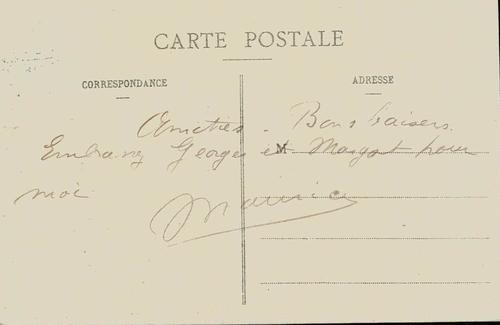 CARTE POSTALE
CORRESPONDANCE
ADRESSE
Amitiés. Bons baisers.
Embrassez Georges et Margot pour
moi
Maurice
M